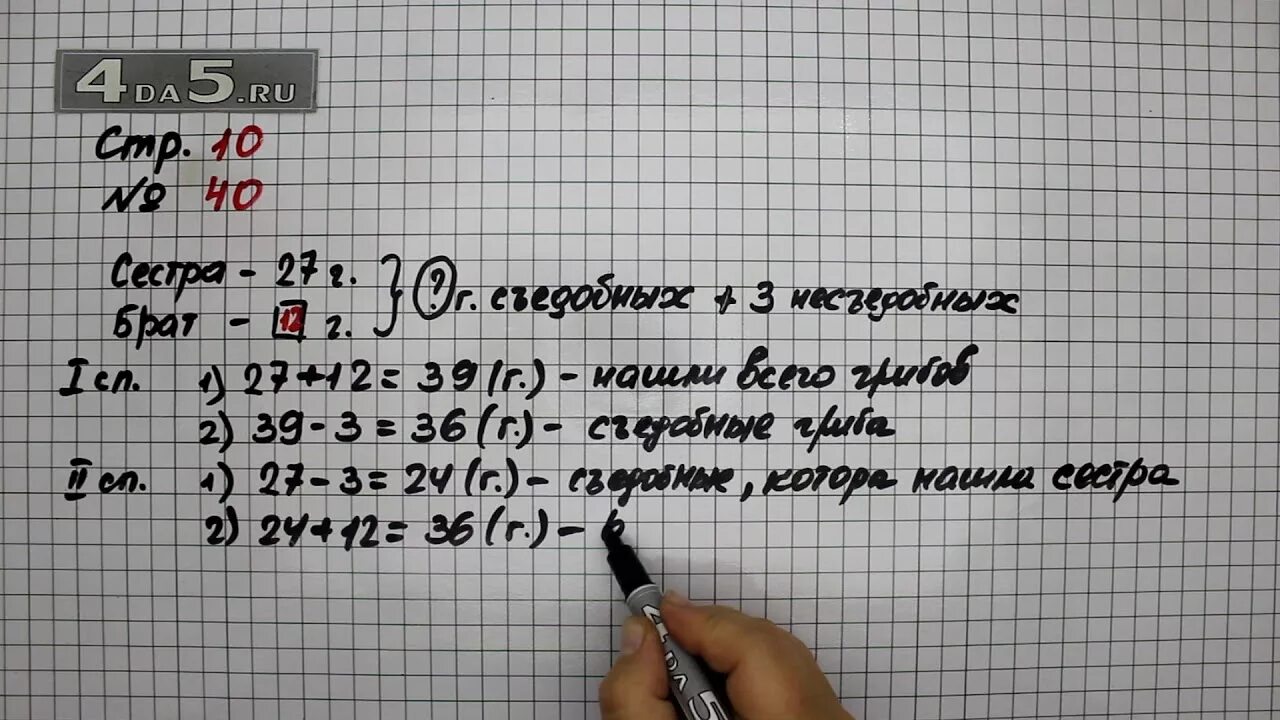 4DA5.RU
Стр. 10
№ 40
Сестра - 27 г.
Брат - 12 г.
? г. съедобных + 3 несъедобных
I сп. 1) 27+12 = 39 (г.) - нашли всего грибов
2) 39 - 3 = 36 (г.) - съедобные гриба
II сп. 1) 27 - 3 = 24 (г.) - съедобные, котора нашла сестра
2) 24+12 = 36 (г.) -
4DA5